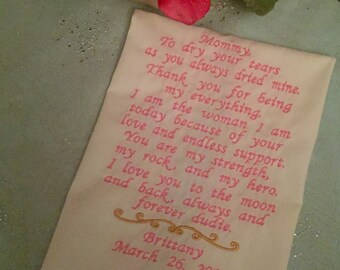 Mommy,
To dry your tears
as you always dried mine.
Thank you for being
my everything.
I am the woman I am
today because of your
love and endless support.
You are my strength,
my rock, and my hero.
I love you to the moon
and back, always and
forever dudie.
Brittany
March 26,